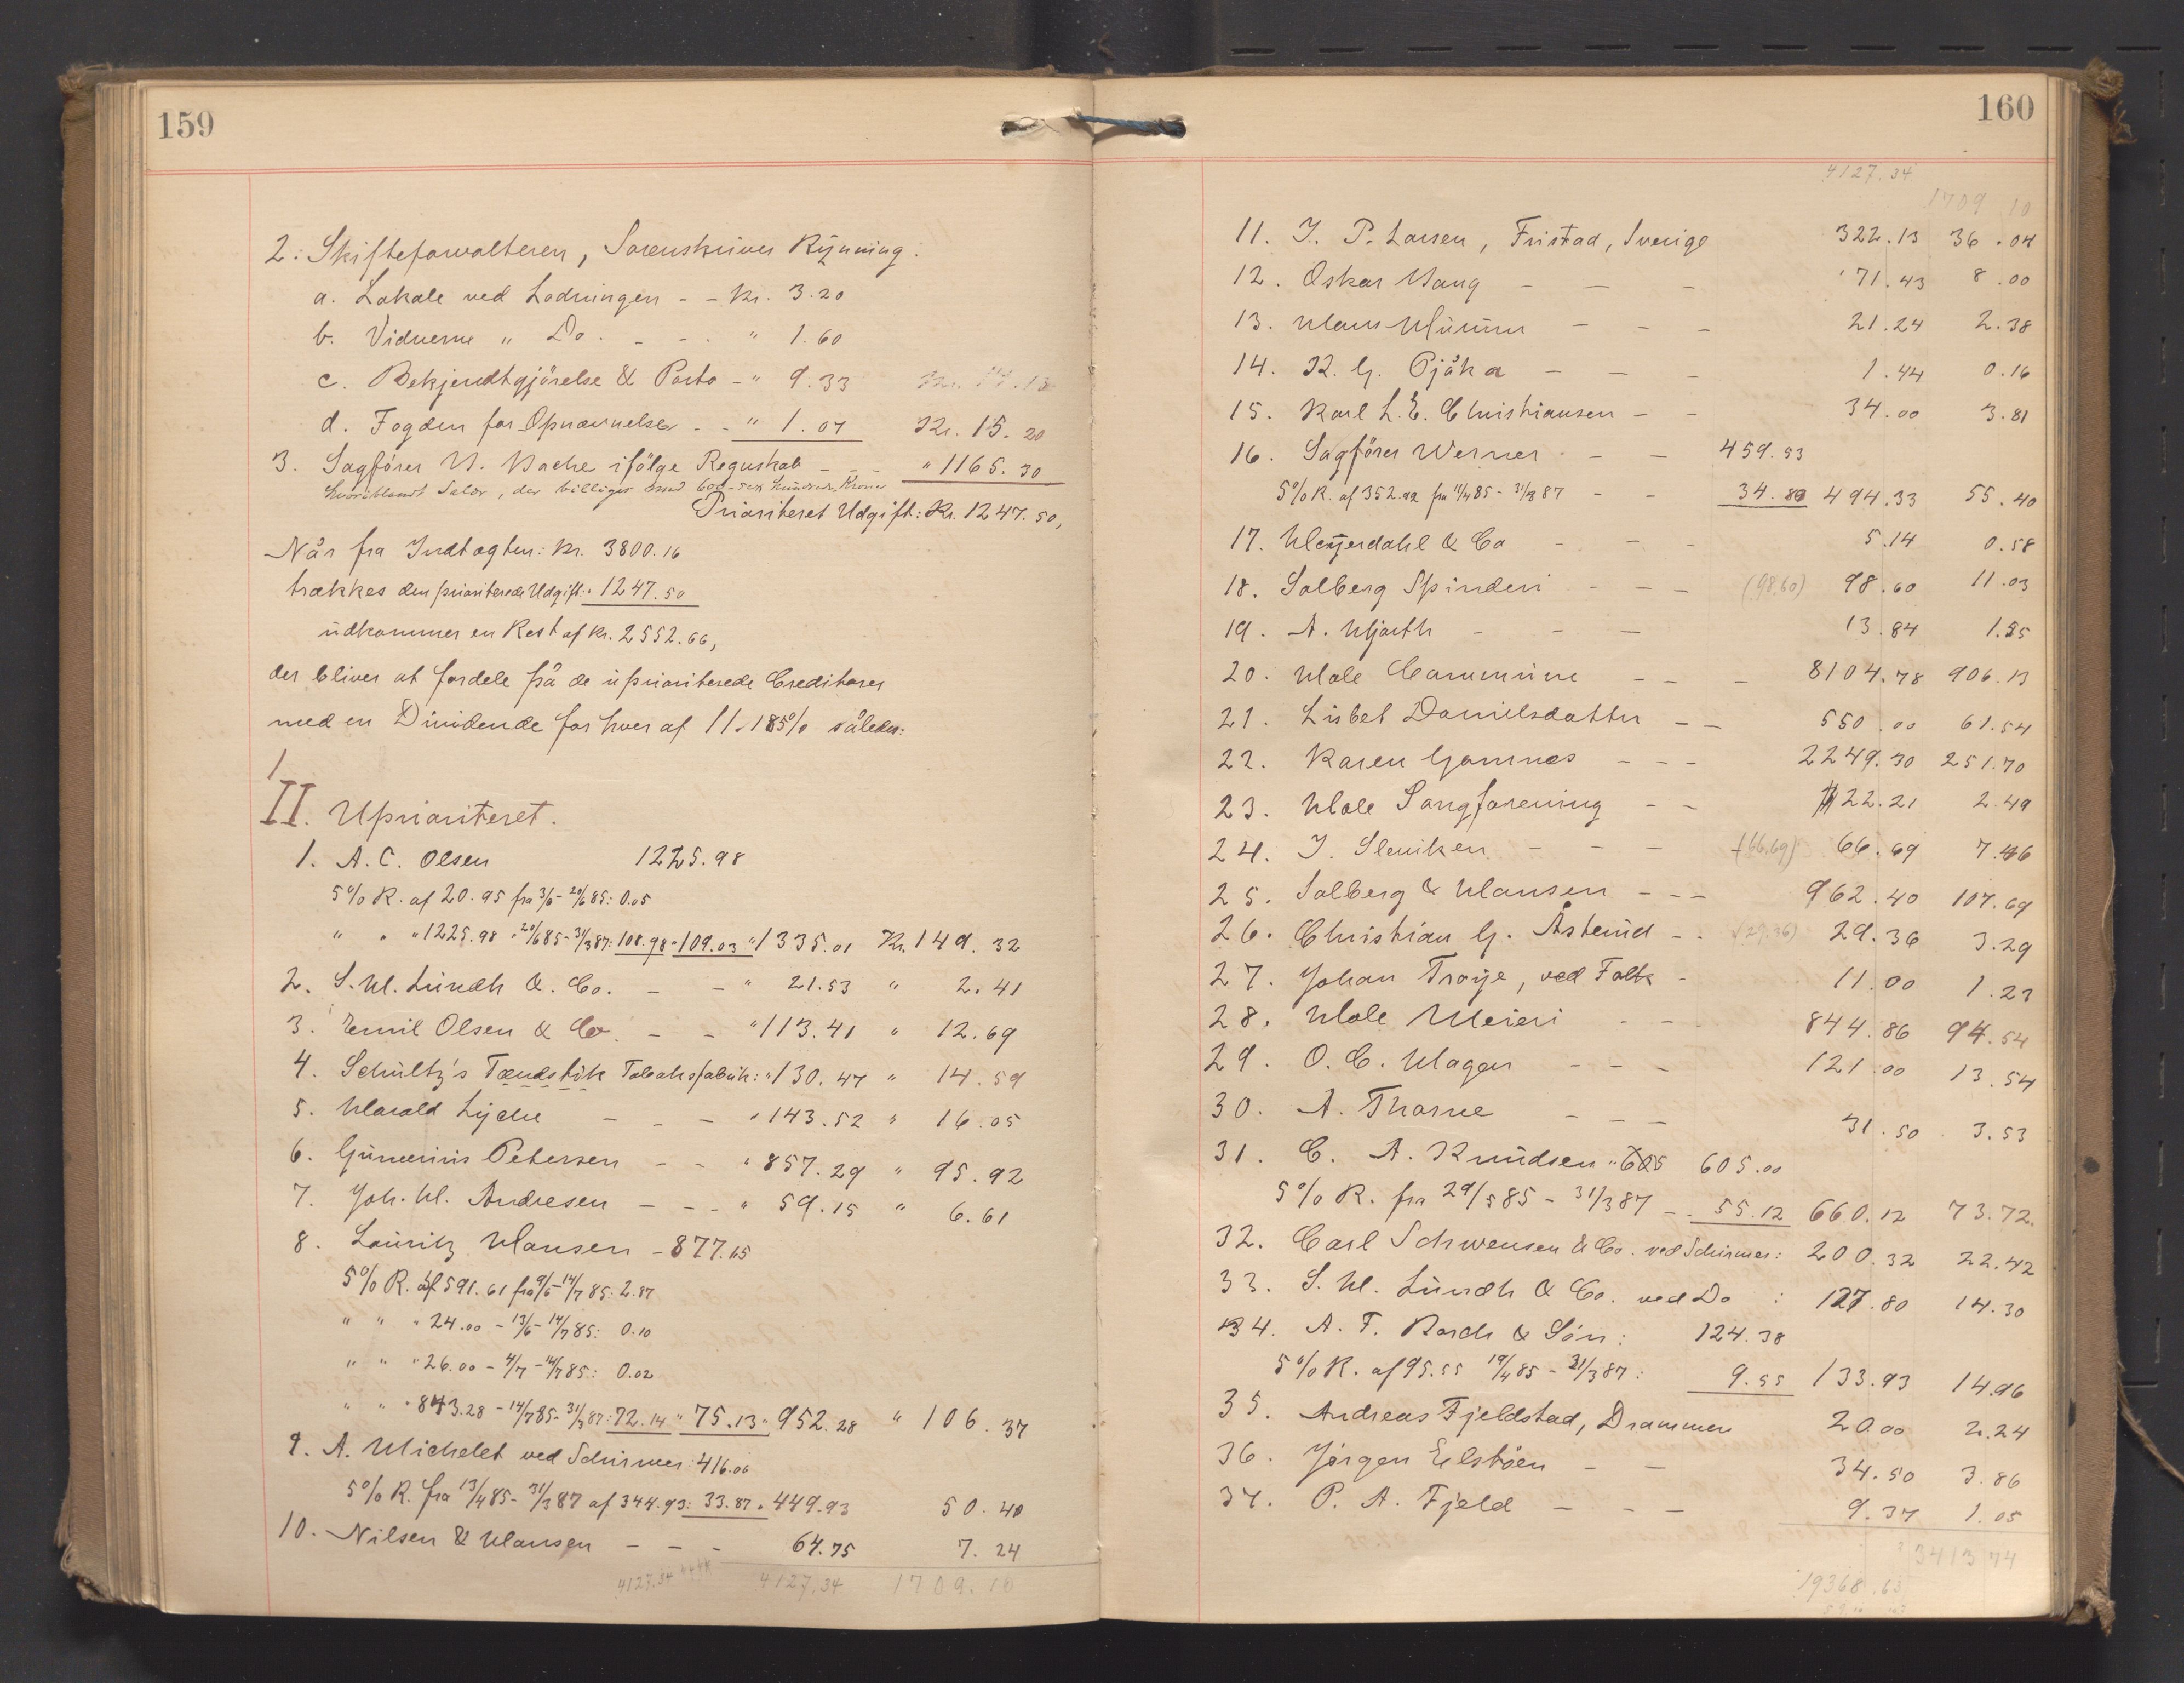 159
2: Skifteforvalteren, Sorenskriver Rynning.
a. Lokale ved Lodningen - - Kr. 3.20
b. Vidnerne " Do. - - - " 1.60
c. Bekjendtgjörelse & Porto - " 9.33
d. Fogden for Opnævnelse - - " 1.07 Kr. 15.20
3. Sagförer N. Bache ifölge Regnskab - - - " 1165.30
hvoriblandt Salær, der billiges med 600 - sex hundrede Kroner
Prioriteret Udgift: Kr. 1247.50,
Når fra Indtægten: Kr. 3800.16
trækkes den prioriterede Udgift: " 1247.50
udkommer en Rest af Kr. 2552.66,
der bliver at fordele på de uprioriterede Creditorer
med en Dividende for hver af 11.185% således:
II. Uprioriteret.
1. A. C. Olsen 1225.98
5% R. af 20.95 fra 3/6 - 20/6 85: 0.05
" " " 1225.98 - 20/6 85 - 31/3 87: 108.98 " 109.03 " 1335.01 Kr. 149.32
2. S. H. Lundh & Co. - - " 21.53 " 2.41
3. Emil Olsen & Co. - - " 113.41 " 12.69
4. Schultz's Tændstik Tobaksfabrik: " 130.47 " 14.59
5. Harald Lyche - - - " 143.52 " 16.05
6. Gunerius Petersen - - " 857.29 " 95.92
7. Joh. H. Andresen - - - " 59.15 " 6.61
8. Lauritz Hansen - 877.15
5% R. af 591.61 fra 9/6 - 14/7 85: 2.87
" " " 24.00 - 13/6 - 14/7 85: 0.10
" " " 26.00 - 4/7 - 14/7 85: 0.02
" " " 843.28 - 14/7 85 - 31/3 87: 72.14 " 75.13 " 952.28 " 106.37
9. A. Michelet ved Schirmer: 416.06
5% R. fra 13/4 85 - 31/3 87 af 344.93: 33.87 " 449.93 50.40
10. Nilsen & Hansen - - - 64.75 7.24
4127.34 4127.34 1709.10
160
4127.34
1709 10
11. I. P. Larsen, Fristad, Sverige 322.13 36.04
12. Oskar Haug - - - 71.43 8.00
13. Hans Mumm - - - 21.24 2.38
14. K. G. Pjåka - - - 1.44 0.16
15. Karl L. E. Christiansen - - 34.00 3.81
16. Sagförer Werner - - 459.53
5% R. af 352.92 fra 11/4 85 - 31/3 87 - - 34.80 494.33 55.40
17. Heyerdahl & Co - - - 5.14 0.58
18. Solberg Spinderi - - - (98.60) 98.60 11.03
19. A. Hjorth - - - 13.84 1.55
20. Hole Commune - - - 8104.78 906.13
21. Lisbet Danielsdatter - - 550.00 61.54
22. Karen Gomnes - - - 2249.30 251.70
23. Hole Sangforening - - 22.21 2.49
24. I. Sleviken - - - (66.69) 66.69 7.46
25. Solberg & Hansen - - - 962.40 107.69
26. Christian G. Åsterud - - (29.36) 29.36 3.29
27. Johan Troye, ved Falk - 11.00 1.23
28. Hole Meieri - - - 844.86 94.54
29. O. C. Hagen - - - 121.00 13.54
30. A. Thorne - - - 31.50 3.53
31. C. A. Knudsen " 605.00
5% R. fra 29/5 85 - 31/3 87 - - 55.12 660.12 73.72.
32. Carl Schwensen & Co. ved Schirmer: 200.32 22.42
33. S. H. Lundh & Co. ved Do : 127.80 14.30
34. A. F. Bosch & Sön: 124.38
5% R. af 95.55 19/4 85 - 31/3 87: 9.55 133.93 14.96
35. Andreas Fjeldstad, Drammen 20.00 2.24
36. Jörgen Elstöen - - 34.50 3.86
37. P. A. Fjeld - - - 9.37 1.05
3413 74
19368.63